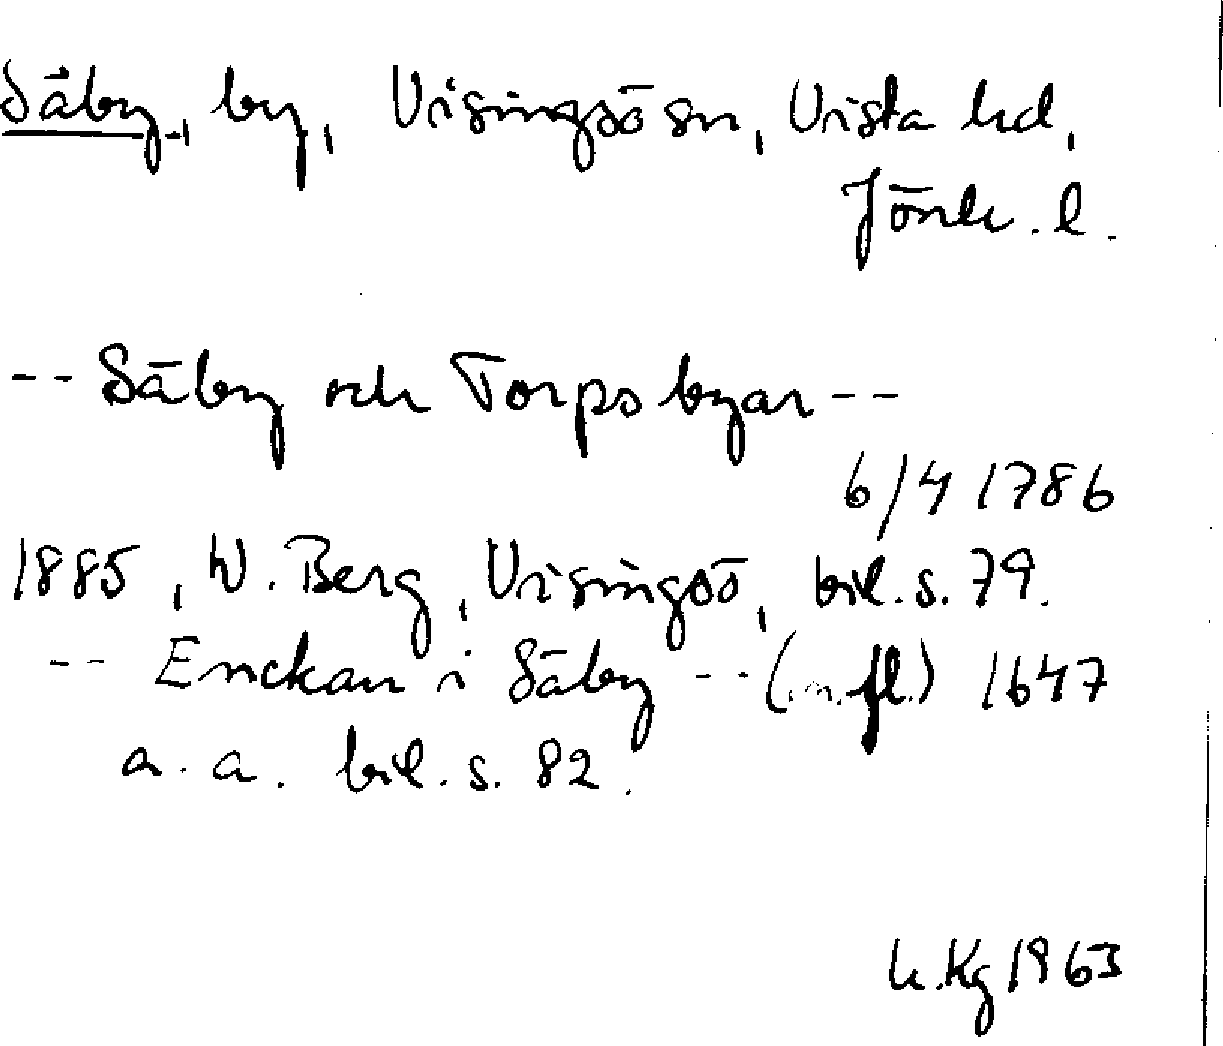 Säby, by, Visingsö sn, Vista hd,
Jönk. l.
-- Säby och Torps byar --
6/4 1786
1885, W. Berg, Visingsö, bil. s. 79.
-- Enckan i Säby -- (m. fl.) 1647
a. a. bil. s. 82.
Kg 1963